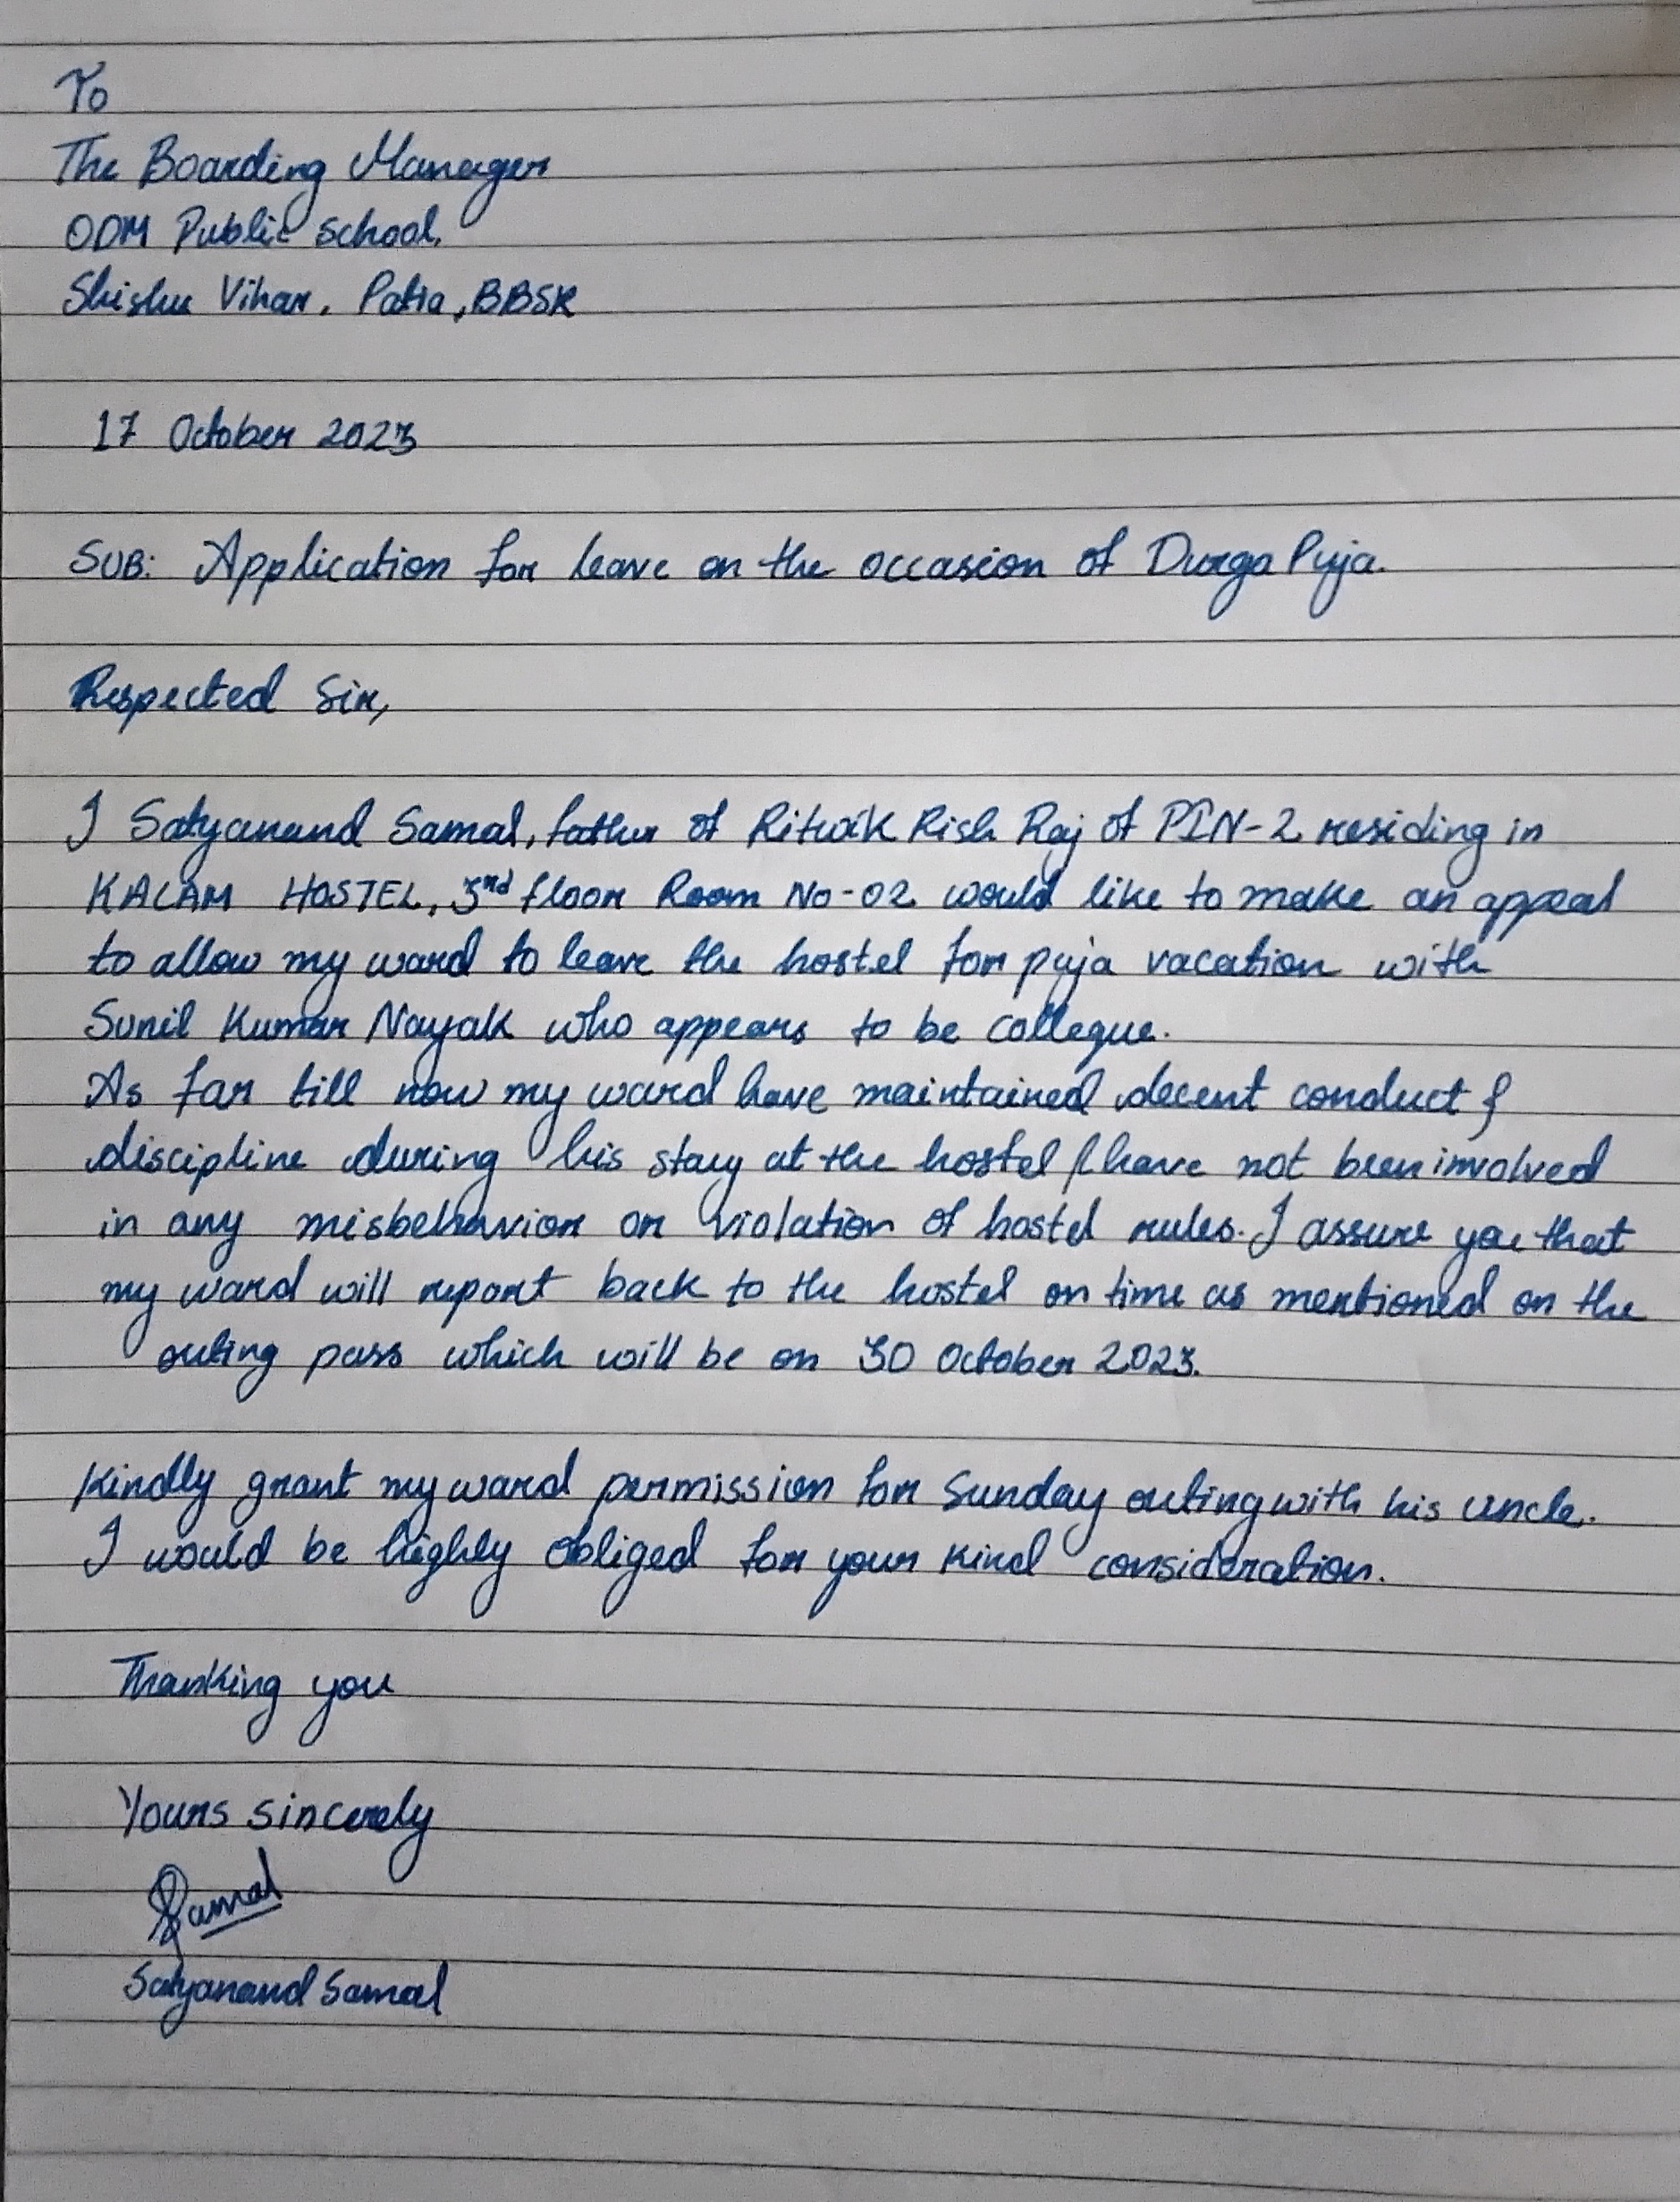 To
The Boarding Manager
ODM Public School,
Shishu Vihar, Patia, BBSR
17 October 2023
SUB: Application for leave on the occasion of Durga Puja.
Respected Sir,
I Satyanand Samal, father of Ritwik Rish Raj of PIN-2 residing in
KALAM HOSTEL, 3rd floor Room No-02 would like to make an appeal
to allow my ward to leave the hostel for puja vacation with
Sunil Kumar Nayak who appears to be collegue.
As far till now my ward have maintained decent conduct &
discipline during his stay at the hostel & have not been involved
in any misbehavior or violation of hostel rules. I assure you that
my ward will report back to the hostel on time as mentioned on the
outing pass which will be on 30 October 2023.
Kindly grant my ward permission for Sunday outing with his uncle.
I would be highly obliged for your kind consideration.
Thanking you
Yours sincerely
Samal
Satyanand Samal